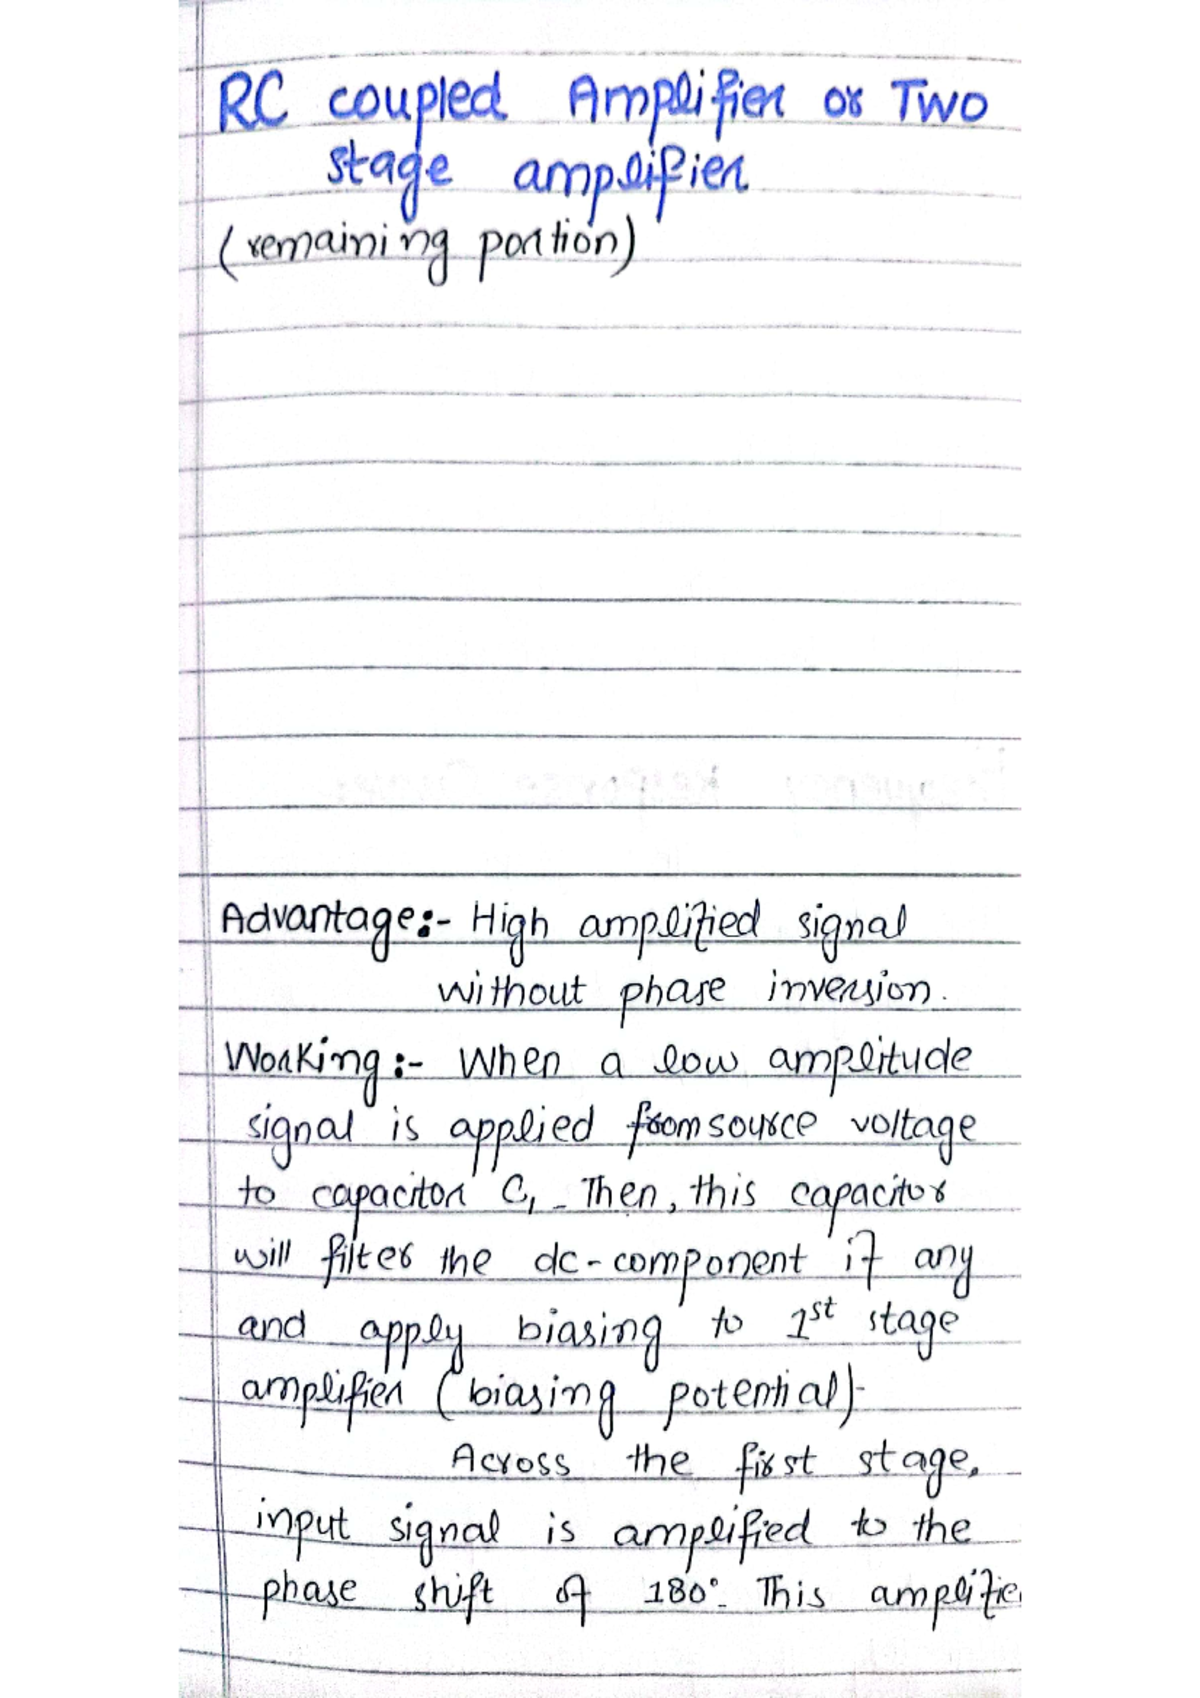 RC coupled Amplifier or Two
stage amplifier
(remaining portion)
Advantage:- High amplified signal
without phase inversion.
Working:- When a low amplitude
signal is applied from source voltage
to capacitor C1. Then, this capacitor
will filter the dc-component if any
and apply biasing to 1st stage
amplifier (biasing potential).
Across the first stage,
input signal is amplified to the
phase shift of 180°. This amplifie